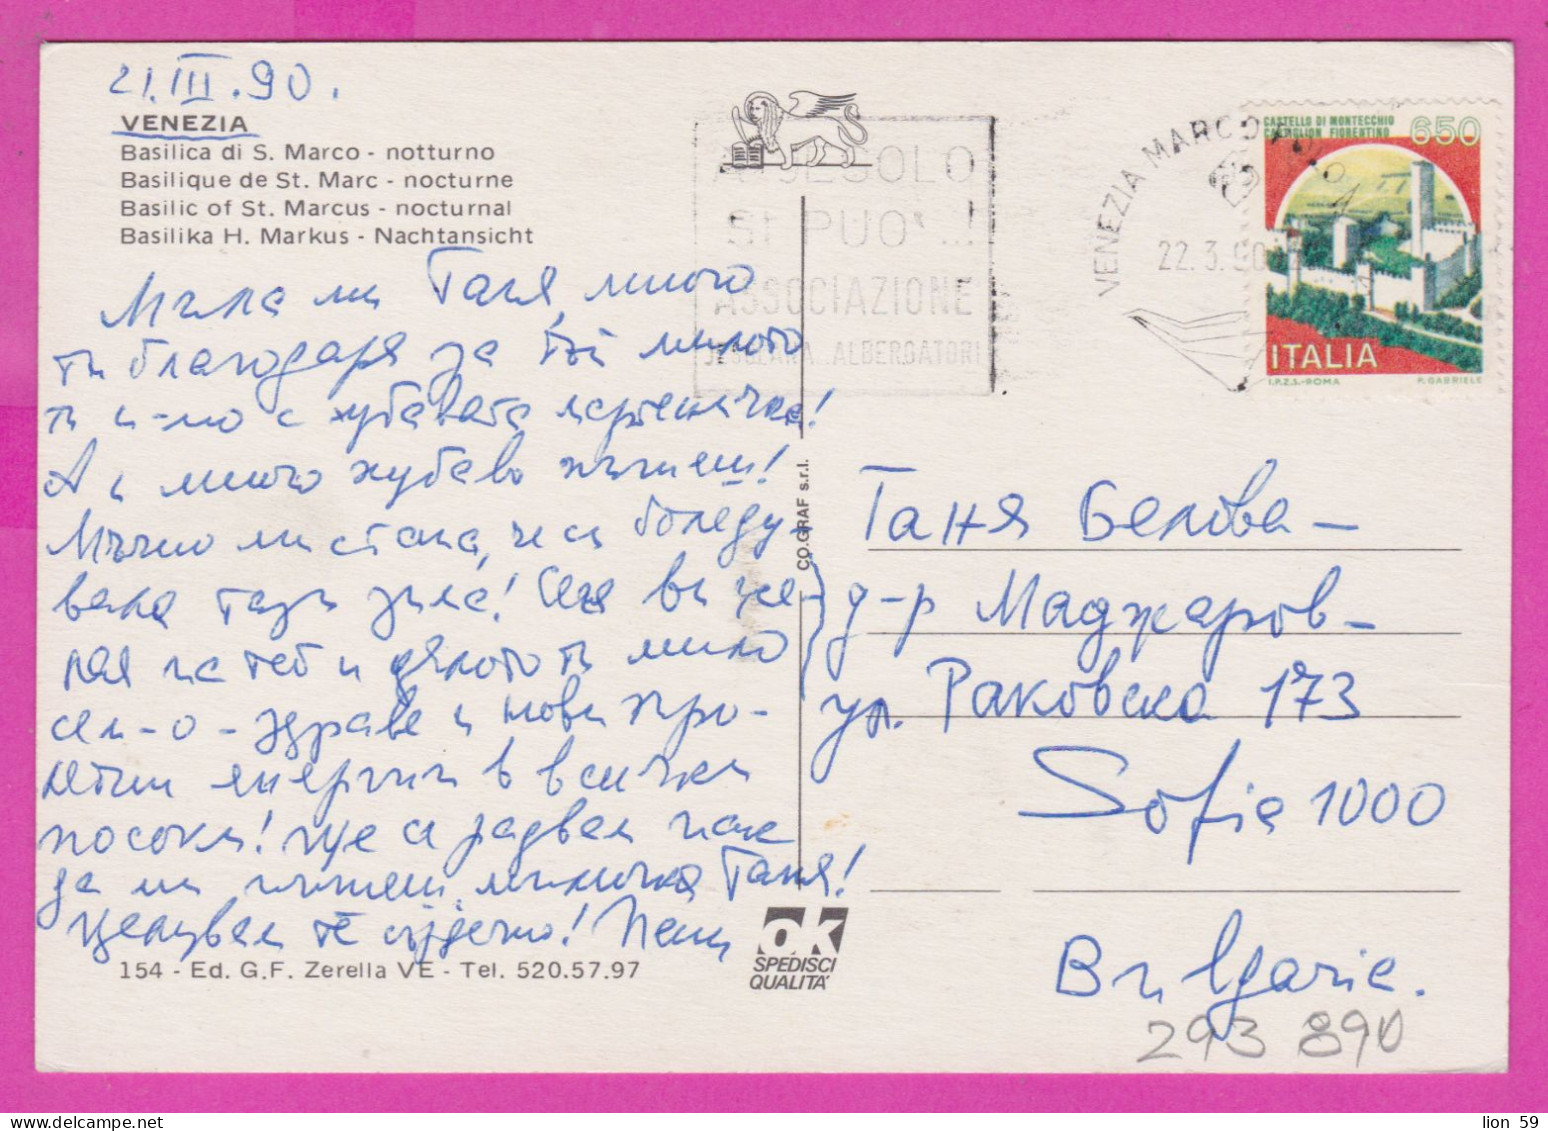 21.III.90.
VENEZIA
Basilica di S. Marco - notturno
Basilique de St. Marc - nocturne
Basilic of St. Marcus - nocturnal
Basilika H. Markus - Nachtansicht
Мила ми Таня, много
ти благодаря за той милото
ти п-мо с хубавата мартеничка!
А и много хубаво пишеш!
Мъчно ми стана, че си боледу-
вала тази зима! Сега ви же-
лая на теб и дялото ти мило
сем-о - здраве и нови про-
летни енергии в всички
посоки! Ще се радвам пак
да ми пишеш, миличка Таня!
Целувам те сърдечно! Пепи
154 - Ed. G.F. Zerella VE - Tel. 520.57.97
OK
SPEDISCI
QUALITA'
CO.GRAF s.r.l.
A JESOLO
SI PUO'...!
ASSOCIAZIONE
JESOLANA ALBERGATORI
VENEZIA MARCO POLO
22.3.90
CASTELLO DI MONTECCHIO
CASTIGLION FIORENTINO
650
ITALIA
I.P.Z.S.-ROMA
P. GABRIELE
Таня Белова -
д-р Маджаров -
ул. Раковска 173
Sofia 1000
Bulgaria.
293 890
lion 59